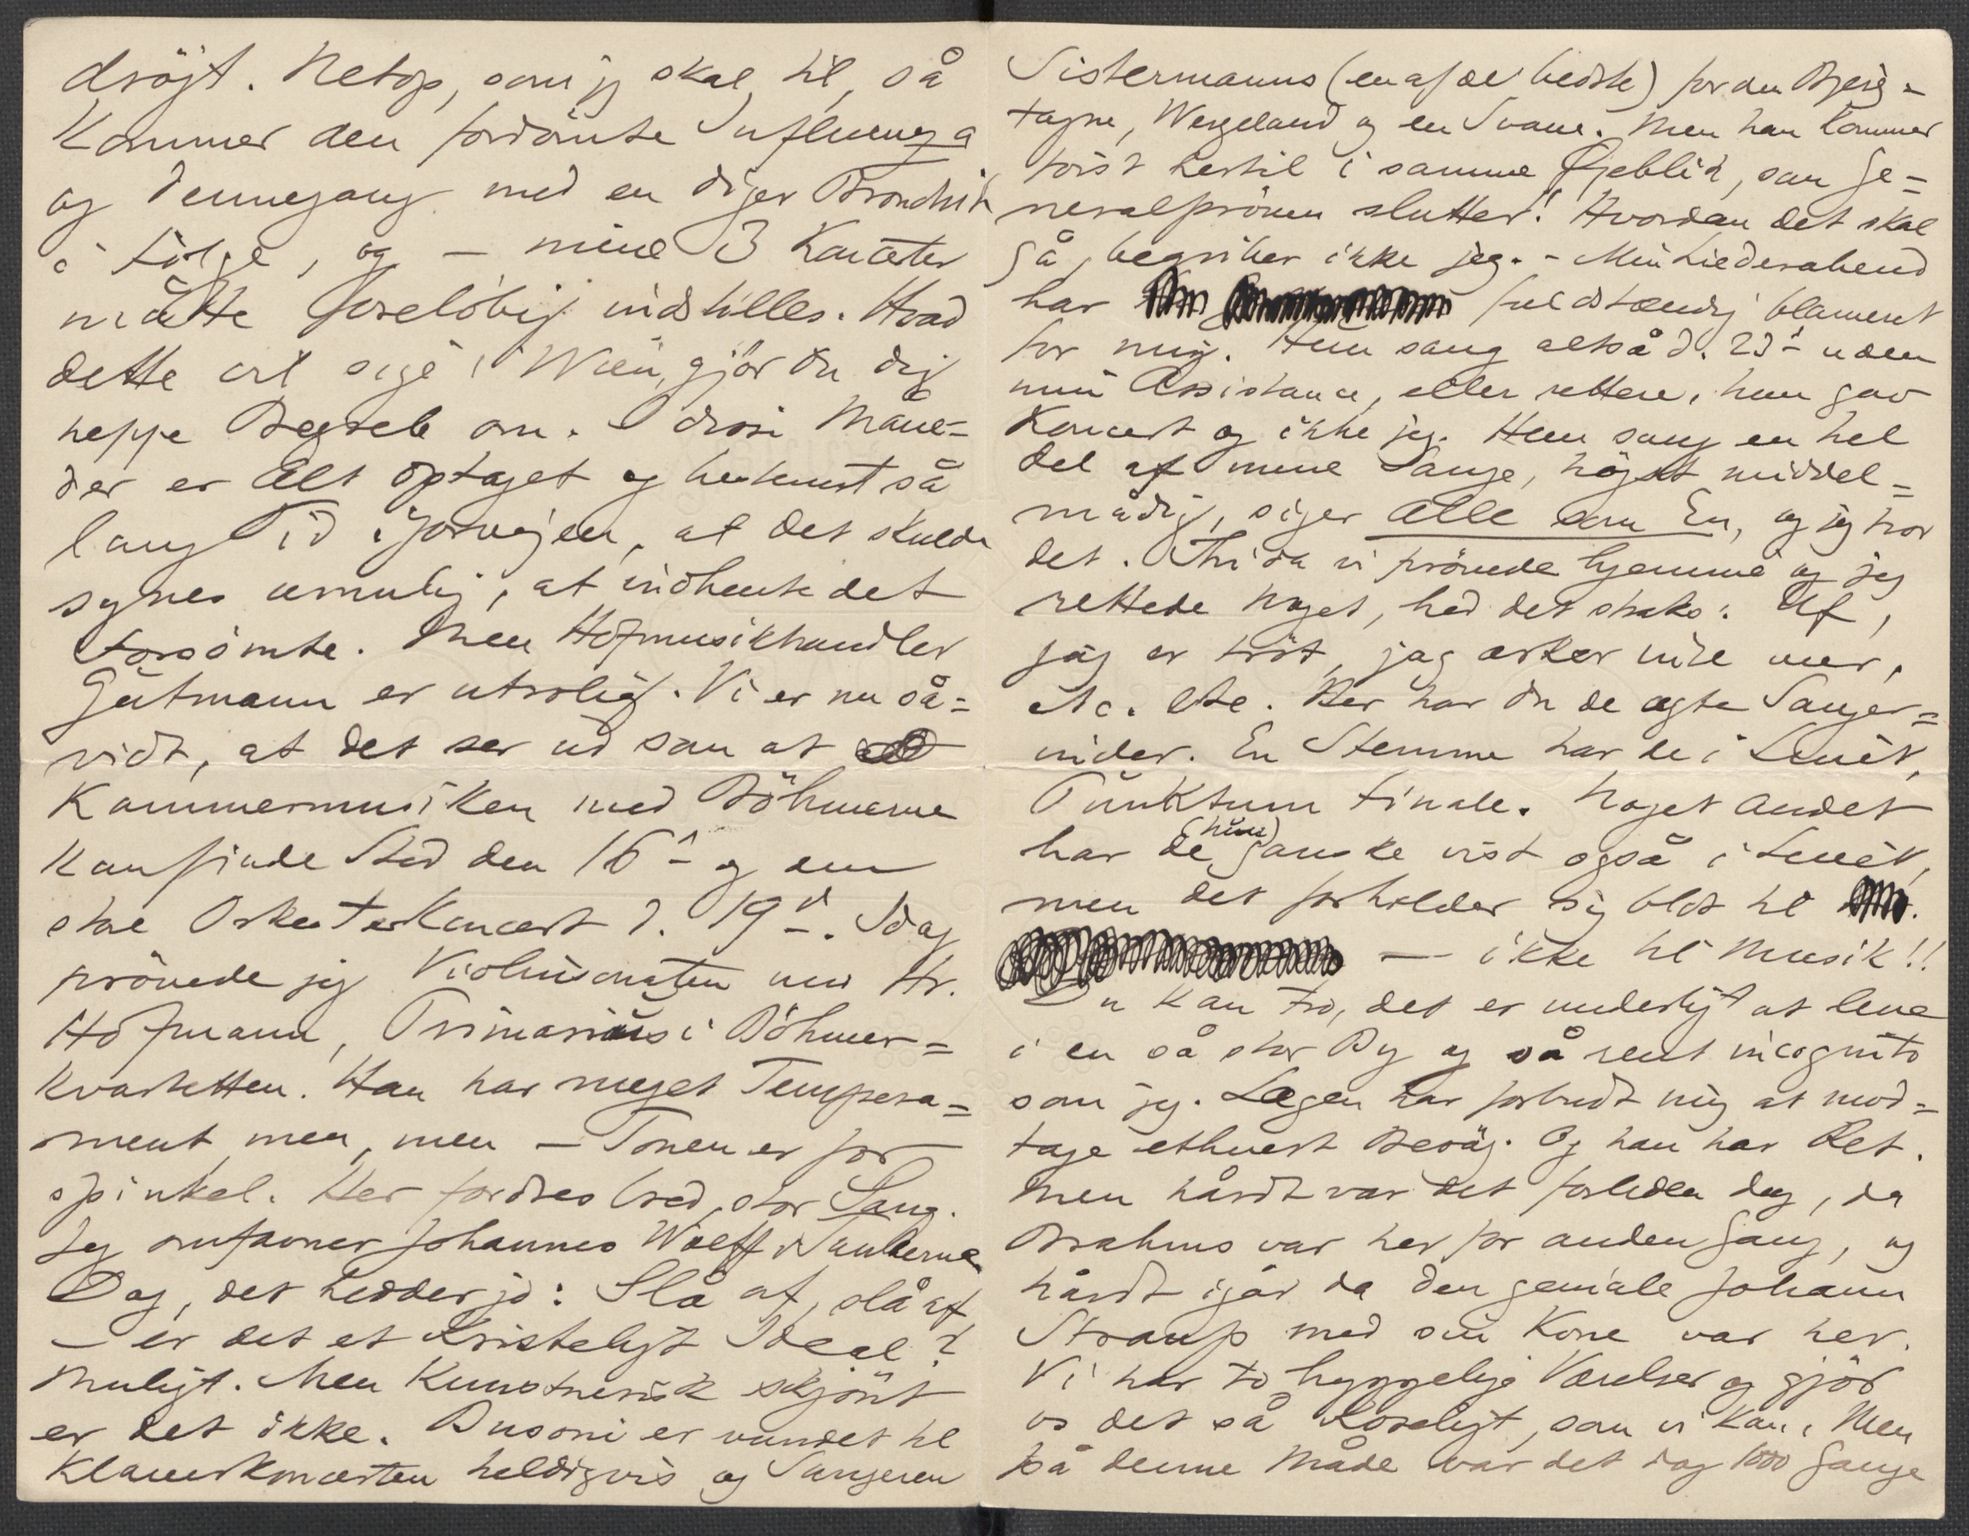 drøjt. Netop, som jeg skal til, så
kommer den fordömte Influenza
og dennegang med en diger Bronchit
i Følge, og – mine 3 Koncerter
måtte foreløbig indstilles. Hvad
dette vil sige i Wien, gjör du dig
neppe Begreb om. I disse Måne=
der er Alt optaget og bestemt så
lang Tid iforvejen, at det skulde
synes umulig, at indhente det
forsömte. Men Hofmusikhandler
Gutmann er utrolig. Vi er nu så=
vidt, at det ser ud som at
Kammermusiken med Böhmerne
kan finde Sted den 16d og den
store Orkesterkoncert d. 19d. Idag
prövede jeg Violinsonaten med Hr.
Hofmann, Primarius i Böhmer=
kvartetten. Han har meget Tempera=
ment, men, men – Tonen er for
spinkel. Her fordres bred, stor Sang.
Jeg omfavner Johannes Wolff i Tankerne
Dog, det hedder jo: Slå af, slå af
– er det et kristeligt Ideal?
Muligt. Men kunstnerisk skjönt
er det ikke. Busoni er vundet til
Klaverkoncerten heldigvis og Sangeren
Sistermanns (en af de bedste) for den Bjerg-
tagne, Wergeland og en Svane. Men han kommer
först hertil i samme Øjeblik, som Ge=
neralpröven slutter! Hvordan det skal
gå, begriber ikke jeg. – Min Liederabend
har fuldstændig blameret
for mig. Hun sang altså d. 23d uden
min Assistance, eller rettere, hun gav
Koncert og ikke jeg. Hun sang en hel
del af mine Sange, högst middel=
mådig, siger alle som En, og jeg tror
det. Thi da vi prövede hjemme og jeg
rettede noget, hed det straks: Uf,
jag er tröt, jag orker inte mer,
etc. etc. Der har du de ægte Sanger=
inder. En Stemme har de i Livet,
Punktum finale. Noget andet
har de (hun) ganske vist også i Livet,
men det forholder sig blot til
— ikke til Musik!!
Du kan tro, det er underligt at leve
i en så stor By og så rent incognito
som jeg. Lægen har forbudt mig at mod=
tage ethvert Besög. Og han har Ret.
Men hårdt var det forleden dag, da
Brahms var her for anden Gang, og
hårdt igår da den geniale Johann
Strauß med sin Kone var her.
Vi har to hyggelige Værelser og gjör
os det så koseligt, som vi kan. Men
på denne Måde var det dog 1000 Gange